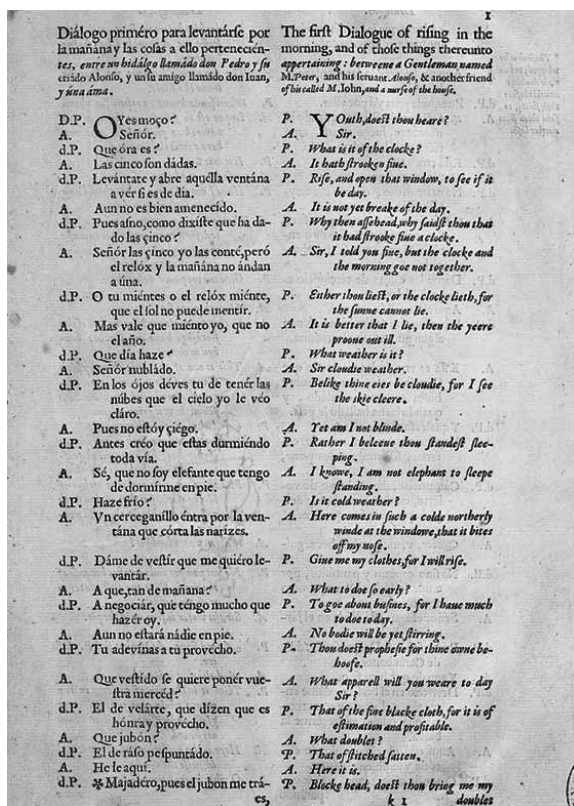 1
Diálogo priméro para levantárse por
la mañana y las cosas a ello pertenecién-
tes, entre un hidálgo llamádo don Pedro y su
criádo Alonso, y un su amigo llamádo don Iuan,
y úna áma.
D.P. OYes moço?
A. Señór.
d.P. Que óra es?
A. Las cinco son dádas.
d.P. Levántate y abre aquélla ventána
a vér si es de dia.
A. Aun no es bien amenecido.
d.P. Pues asno, como dixíste que ha da-
do las çinco?
A. Señór las çinco yo las conté, peró
el relóx y la mañána no ándan
a úna.
d.P. O tu miéntes o el relóx miénte,
que el sol no puede mentír.
A. Mas vale que miénto yo, que no
el año.
d.P. Que día haze?
A. Señór nubládo.
d.P. En los ójos déves tu de tenér las
núbes que el cielo yo le véo
cláro.
A. Pues no estóy çiégo.
d.P. Antes créo que estas durmiéndo
toda vía.
A. Sé, que no soy elefante que tengo
de dormírme en pie.
d.P. Haze frío?
A. Vn cerceganíllo éntra por la ven-
tána que córta las narízes.
d.P. Dáme de vestír que me quiéro le-
vantár.
A. A que, tan de mañana?
d.P. A negociár, que téngo mucho que
hazér oy.
A. Aun no estará nádie en pie.
d.P. Tu adevínas a tu provécho.
A. Que vestído se quiere ponér vue-
stra mercéd?
d.P. El de velárte, que dízen que es
hónra y provécho.
A. Que jubón?
d.P. El de ráso pespuntádo.
A. He le aquí.
d.P. ✻ Majadéro, pues el jubon me trá-
es,
The first Dialogue of rising in the
morning, and of those things thereunto
appertaining: betweene a Gentleman, named
M. Peter, and his seruant Alonso, & another friend
of his called M. Iohn, and a nurse of the house.
P. YOuth, doest thou heare?
A. Sir.
P. What is it of the clocke?
A. It hath strooken fiue.
P. Rise, and open that window, to see if it
be day.
A. It is not yet breake of the day.
P. Why then assehead, why saidst thou that
it had strooke fiue a clocke.
A. Sir, I told you fiue, but the clocke and
the morning goe not together.
P. Either thou liest, or the clocke lieth, for
the sunne cannot lie.
A. It is better that I lie, then the yeere
prooue out ill.
P. What weather is it?
A. Sir cloudie weather.
P. Belike thine eies be cloudie, for I see
the skie cleere.
A. Yet am I not blinde.
P. Rather I beleeue thou standest slee-
ping.
A. I knowe, I am not elephant to sleepe
standing.
P. Is it cold weather?
A. Here comes in such a colde northerly
winde at the windowe, that it bites
off my nose.
P. Giue me my clothes, for I will rise.
A. What to doe so early?
P. To goe about busines, for I haue much
to doe to day.
A. No bodie will be yet stirring.
P. Thou doest prophesie for thine owne be-
hoofe.
A. What apparell will you weare to day
Sir?
P. That of the fine blacke cloth, for it is of
estimation and profitable.
A. What doublet?
P. That of stitched satten.
A. Here it is.
P. Blocke head, doest thou bring me my
k 1 doubles